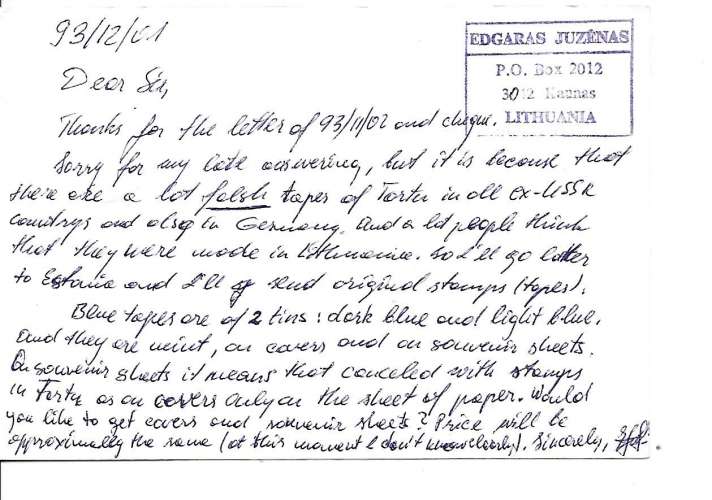 93/12/01
EDGARAS JUZĖNAS
P.O. Box 2012
3012 Kaunas
LITHUANIA
Dear Sir,
Thanks for the letter of 93/11/02 and cheque.
Sorry for my late answering, but it is because that
there are a lot falsh tapes of Tartu in all ex-USSR
countrys and also in Germany. And a lot people think
that they were made in Lithuania. So I'll go latter
to Estonia and I'll send original stamps (tapes).
Blue tapes are of 2 tins: dark blue and light blue.
And they are mint, on covers and on souvenir sheets.
On souvenir sheets it means that canceled with stamps
in Tartu as on covers only on the sheet of paper. Would
you like to get covers and souvenir sheets? Price will be
approximally the same (at this moment I don't know clearly). Sincerely,